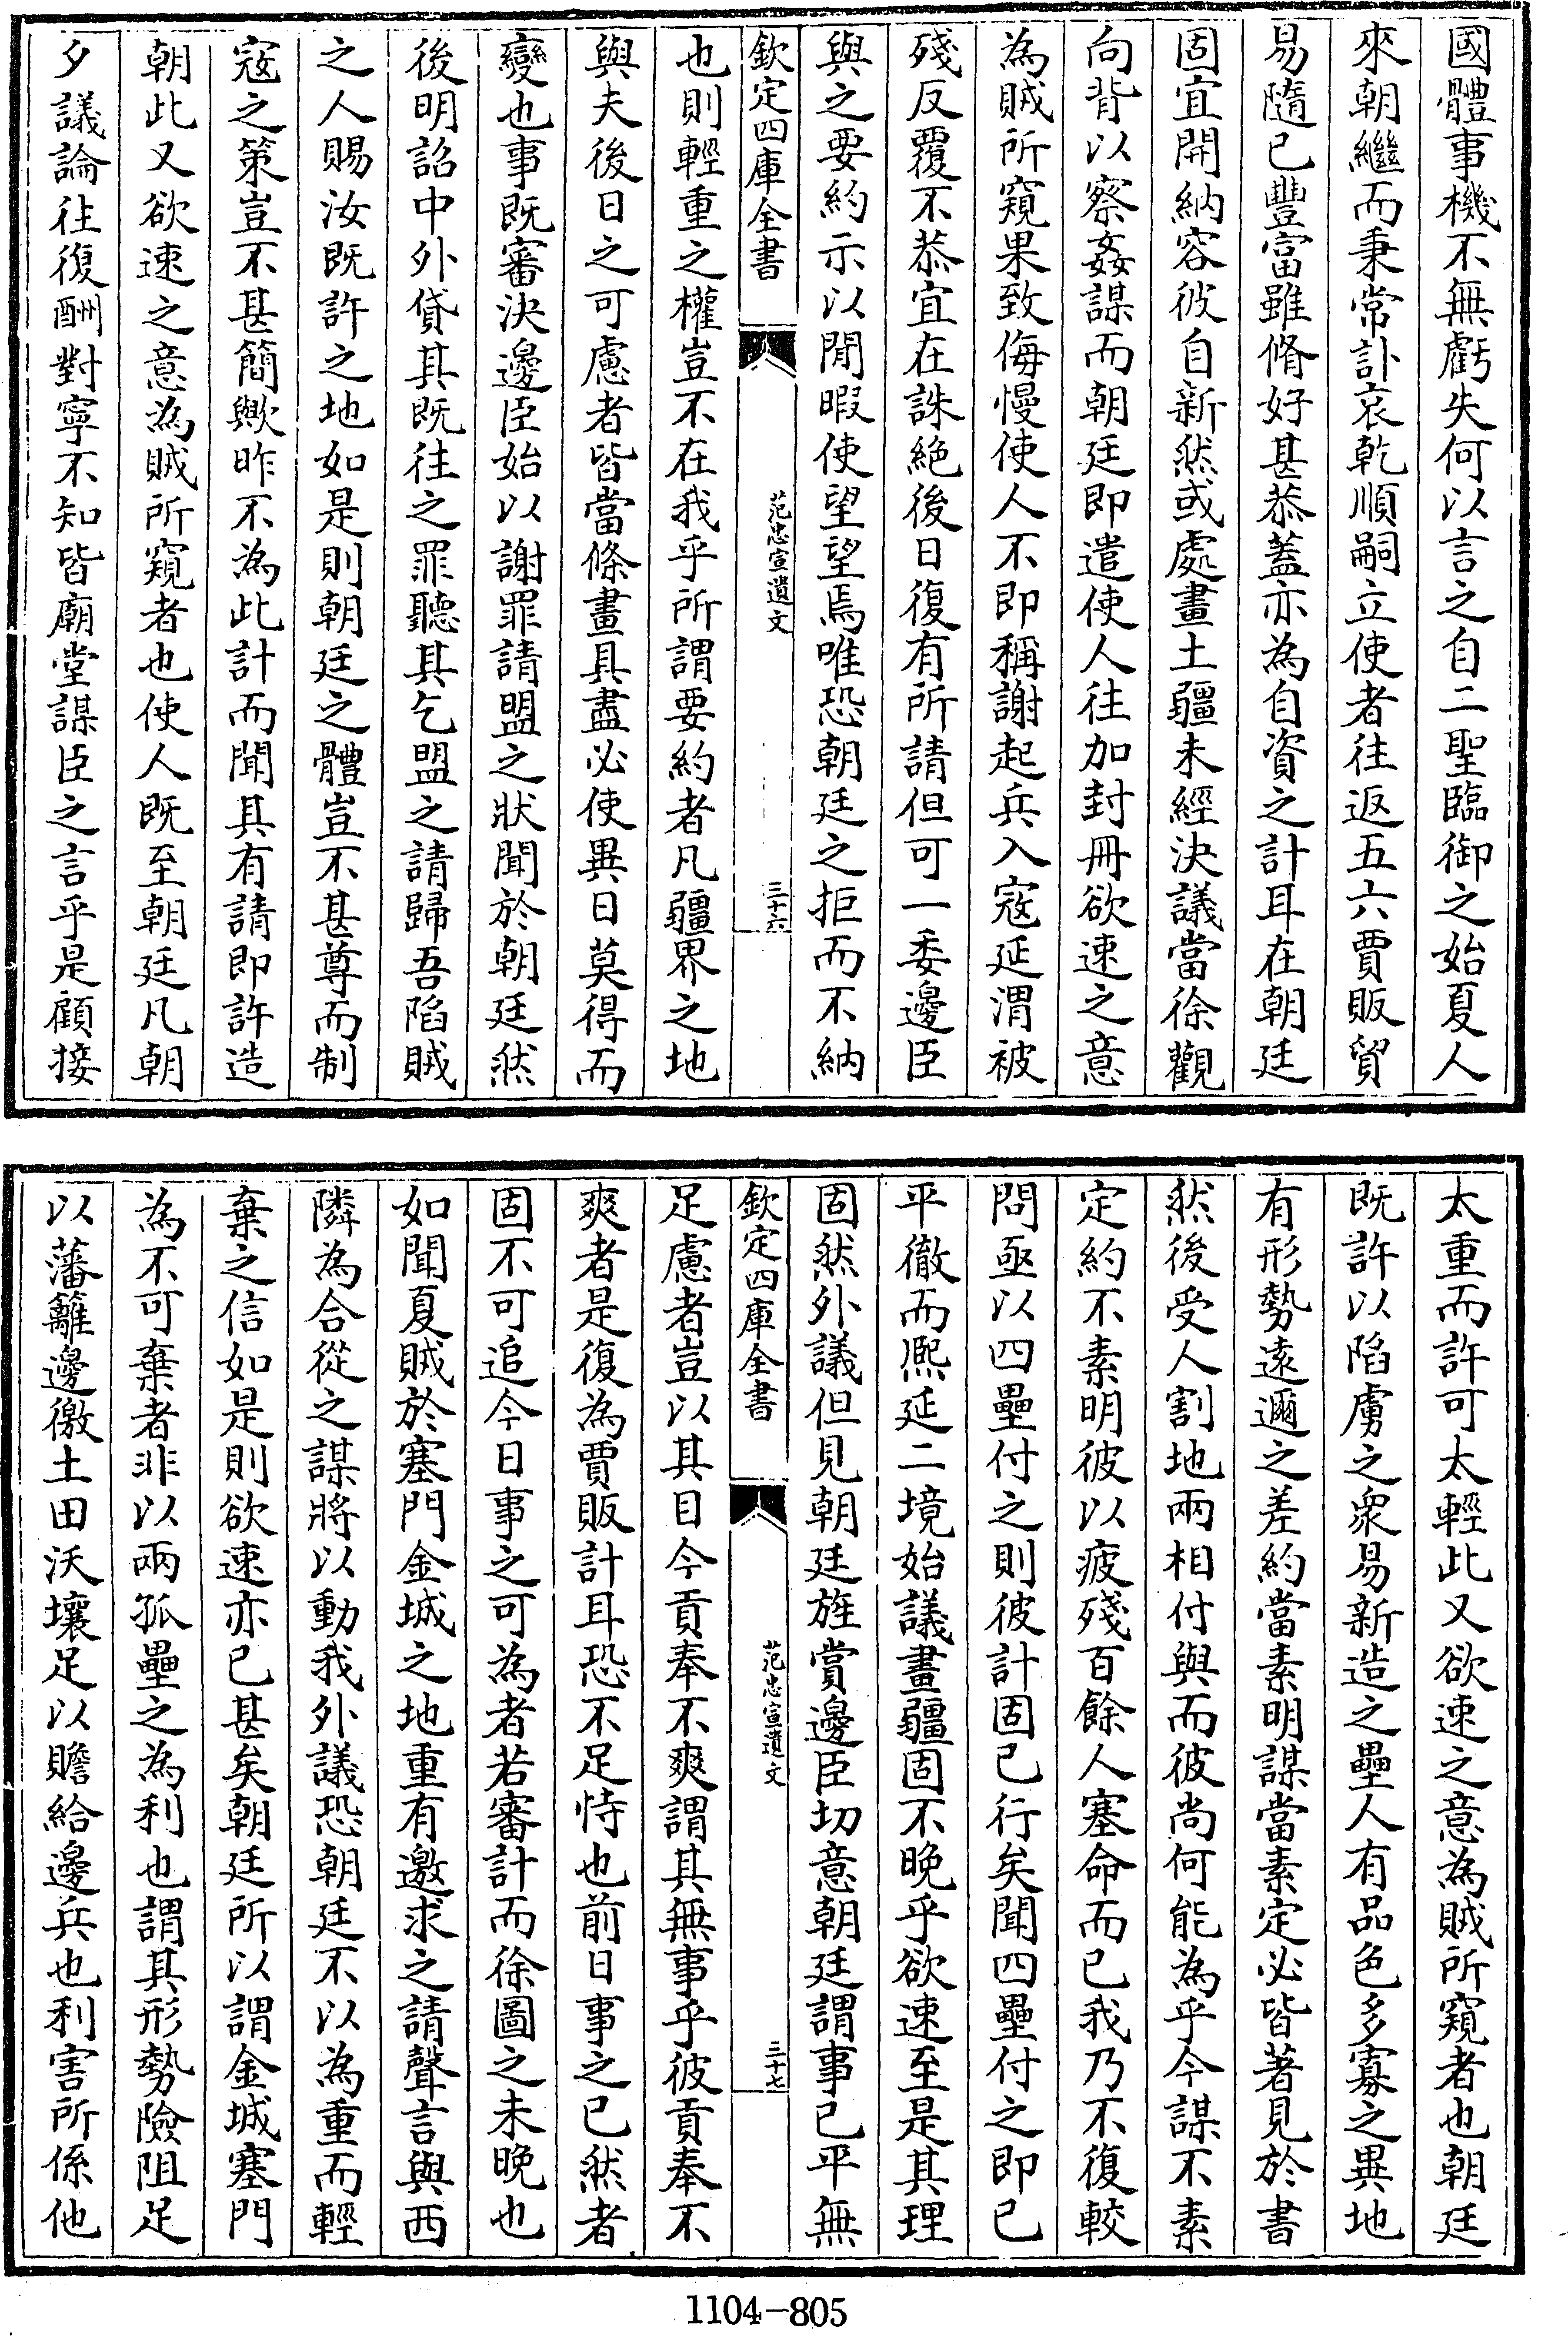 國體事機不無虧失何以言之自二聖臨御之始夏人
來朝繼而秉常訃哀乾順嗣立使者往返五六賈販貿
易隨已豐富雖脩好甚恭蓋亦為自資之計耳在朝廷
固宜開納容彼自新然或處畫土疆未經決議當徐觀
向背以察姦謀而朝廷即遣使人往加封冊欲速之意
為賊所窺果致侮慢使人不即稱謝起兵入寇延渭被
殘反覆不恭宜在誅絶後日復有所請但可一委邊臣
與之要約示以閒暇使望望焉唯恐朝廷之拒而不納
欽定四庫全書
范忠宣遺文
三十六
也則輕重之權豈不在我乎所謂要約者凡疆界之地
與夫後日之可慮者皆當條畫具盡必使異日莫得而
變也事既審決邊臣始以謝罪請盟之狀聞於朝廷然
後明詔中外貸其既往之罪聽其乞盟之請歸吾陷賊
之人賜汝既許之地如是則朝廷之體豈不甚尊而制
寇之策豈不甚簡歟昨不為此計而聞其有請即許造
朝此又欲速之意為賊所窺者也使人既至朝廷凡朝
夕議論往復酬對寧不知皆廟堂謀臣之言乎是顧接
太重而許可太輕此又欲速之意為賊所窺者也朝廷
既許以陷虜之衆易新造之壘人有品色多寡之異地
有形勢遠邇之差約當素明謀當素定必皆著見於書
然後受人割地兩相付與而彼尚何能為乎今謀不素
定約不素明彼以疲殘百餘人塞命而已我乃不復較
問亟以四壘付之則彼計固已行矣聞四壘付之即已
平徹而熈延二境始議畫疆固不晚乎欲速至是其理
固然外議但見朝廷旌賞邊臣切意朝廷謂事已平無
欽定四庫全書
范忠宣遺文
三十七
足慮者豈以其目今貢奉不爽謂其無事乎彼貢奉不
爽者是復為賈販計耳恐不足恃也前日事之已然者
固不可追今日事之可為者若審計而徐圖之未晚也
如聞夏賊於塞門金城之地重有邀求之請聲言與西
隣為合從之謀將以動我外議恐朝廷不以為重而輕
棄之信如是則欲速亦已甚矣朝廷所以謂金城塞門
為不可棄者非以兩孤壘之為利也謂其形勢險阻足
以藩籬邊徼土田沃壤足以贍給邊兵也利害所係他
1104-805